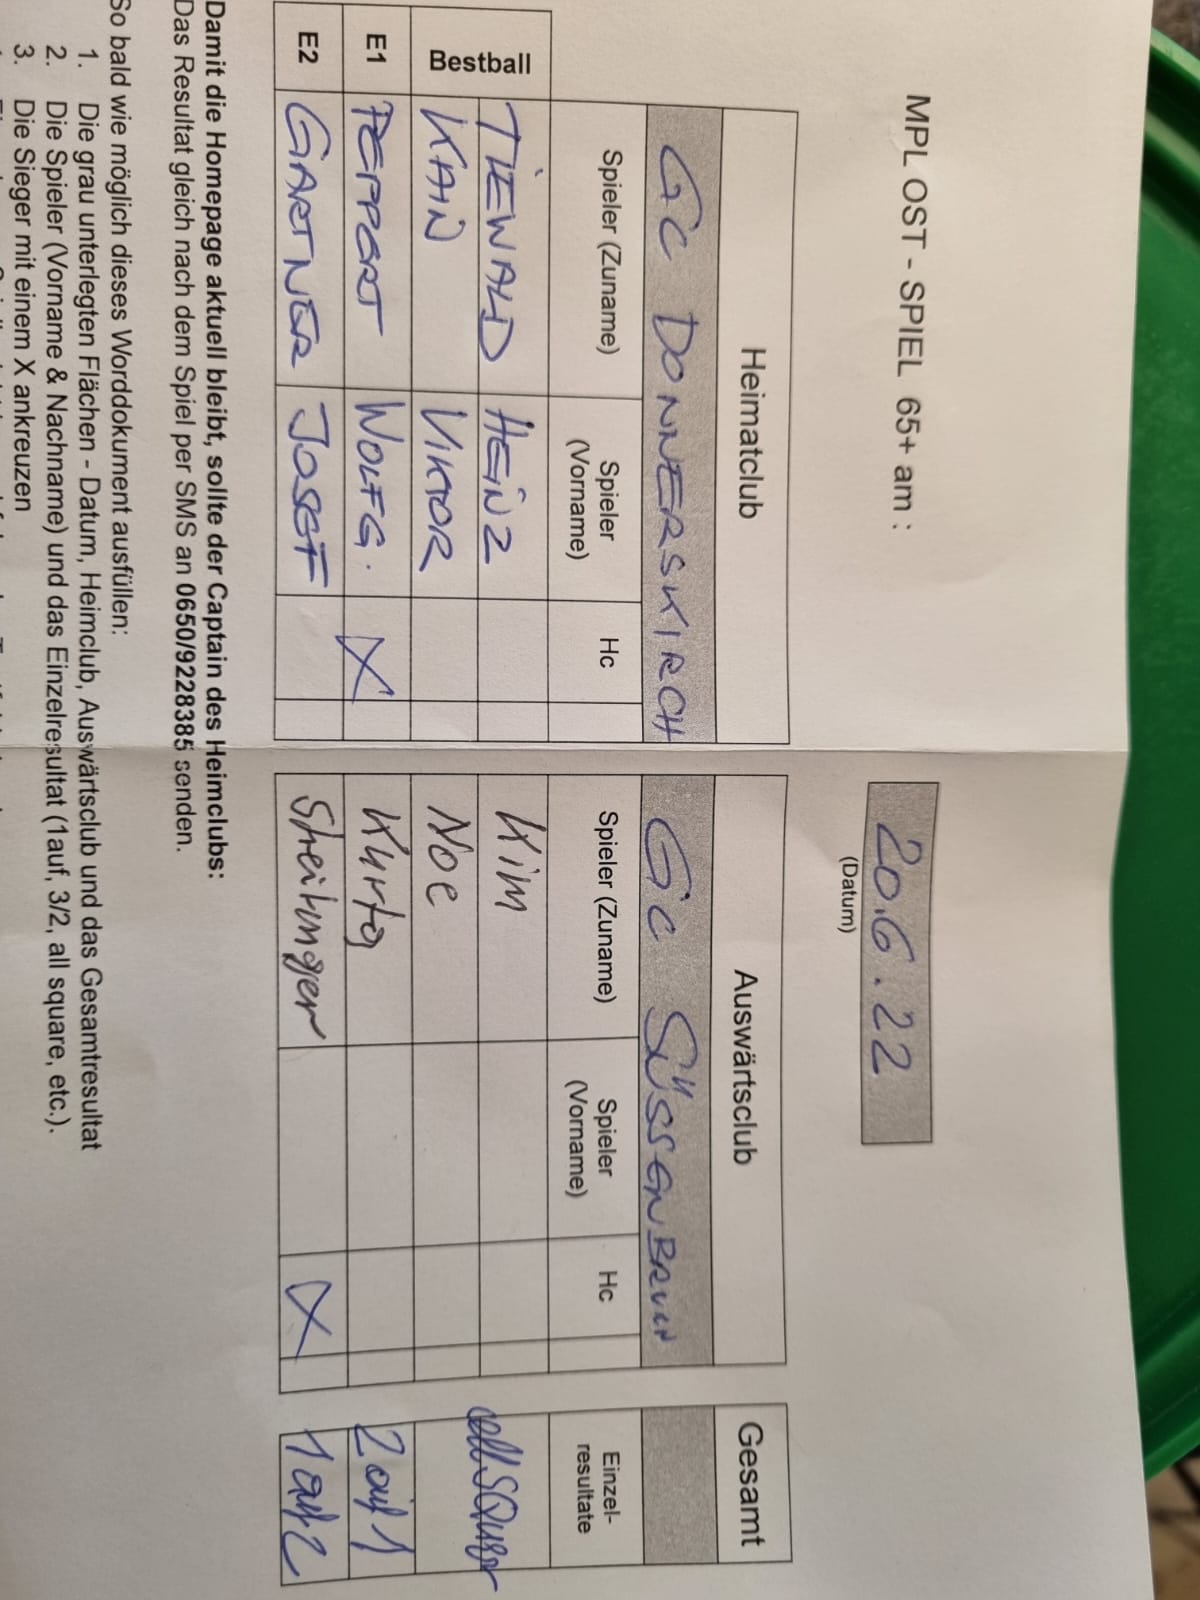 MPL OST - SPIEL 65+ am :
20.6.22
(Datum)
Heimatclub
Auswärtsclub
Gesamt
GC DONNERSKIRCH
GC SÜSSENBRUNN
Spieler (Zuname)
Spieler (Vorname)
Hc
Spieler (Zuname)
Spieler (Vorname)
Hc
Einzel-resultate
Bestball
TIEWALD HEINZ Kim all square
KAIN VIKTOR Noe
E1 PEPPERT WOLFG. X Kurta 2 auf 1
E2 GARTNER JOSEF Streitunger X 1 auf 2
Damit die Homepage aktuell bleibt, sollte der Captain des Heimclubs:
Das Resultat gleich nach dem Spiel per SMS an 0650/9228385 senden.
So bald wie möglich dieses Worddokument ausfüllen:
1. Die grau unterlegten Flächen - Datum, Heimclub, Auswärtsclub und das Gesamtresultat
2. Die Spieler (Vorname & Nachname) und das Einzelresultat (1auf, 3/2, all square, etc.).
3. Die Sieger mit einem X ankreuzen